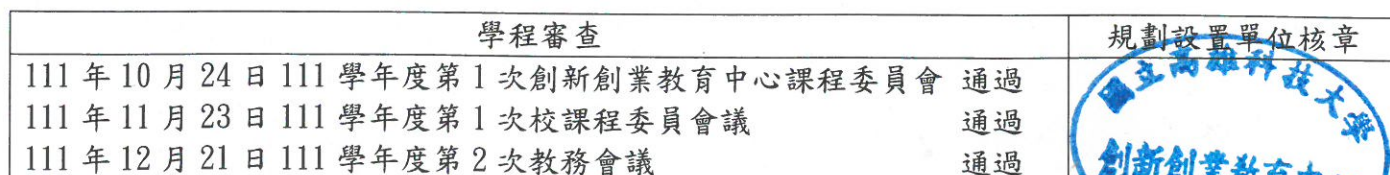 學程審查 規劃設置單位核章
111 年 10 月 24 日 111 學年度第 1 次創新創業教育中心課程委員會 通過
111 年 11 月 23 日 111 學年度第 1 次校課程委員會議 通過
111 年 12 月 21 日 111 學年度第 2 次教務會議 通過
國立高雄科技大學
創新創業教育中